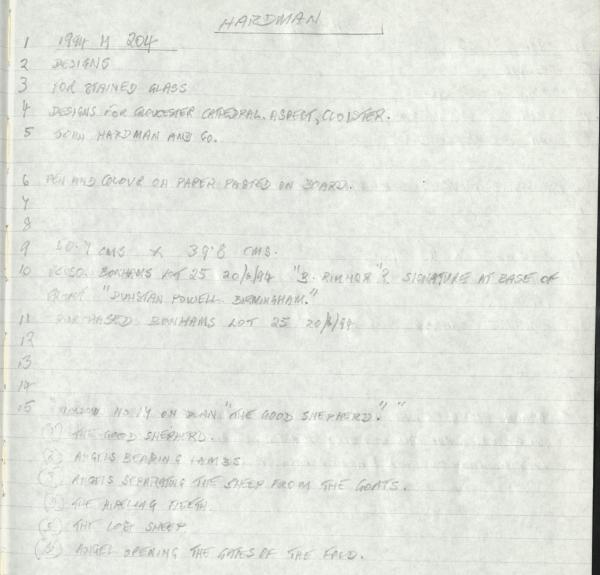 HARDMAN
1 1994 H 204
2 DESIGNS
3 FOR STAINED GLASS
4 DESIGNS FOR GLOUCESTER CATHEDRAL. ASPECT, CLOISTER.
5 JOHN HARDMAN AND CO.
6 PEN AND COLOUR ON PAPER PASTED ON BOARD.
7
8
9 CMS X 39.8 CMS.
10 BONHAMS LOT 25 20/ /94 SIGNATURE AT BASE OF
"DUNSTAN POWELL BIRMINGHAM."
11 PURCHASED BONHAMS LOT 25 20/ /94
12
13
14
15 WINDOW NO 14 ON PLAN "THE GOOD SHEPHERD."
THE GOOD SHEPHERD.
(2) ANGELS BEARING LAMBS
ANGELS SEPARATING THE SHEEP FROM THE GOATS.
THE HIRELING FLEETH
THE LOST SHEEP
ANGEL OPENING THE GATES OF THE FOLD.